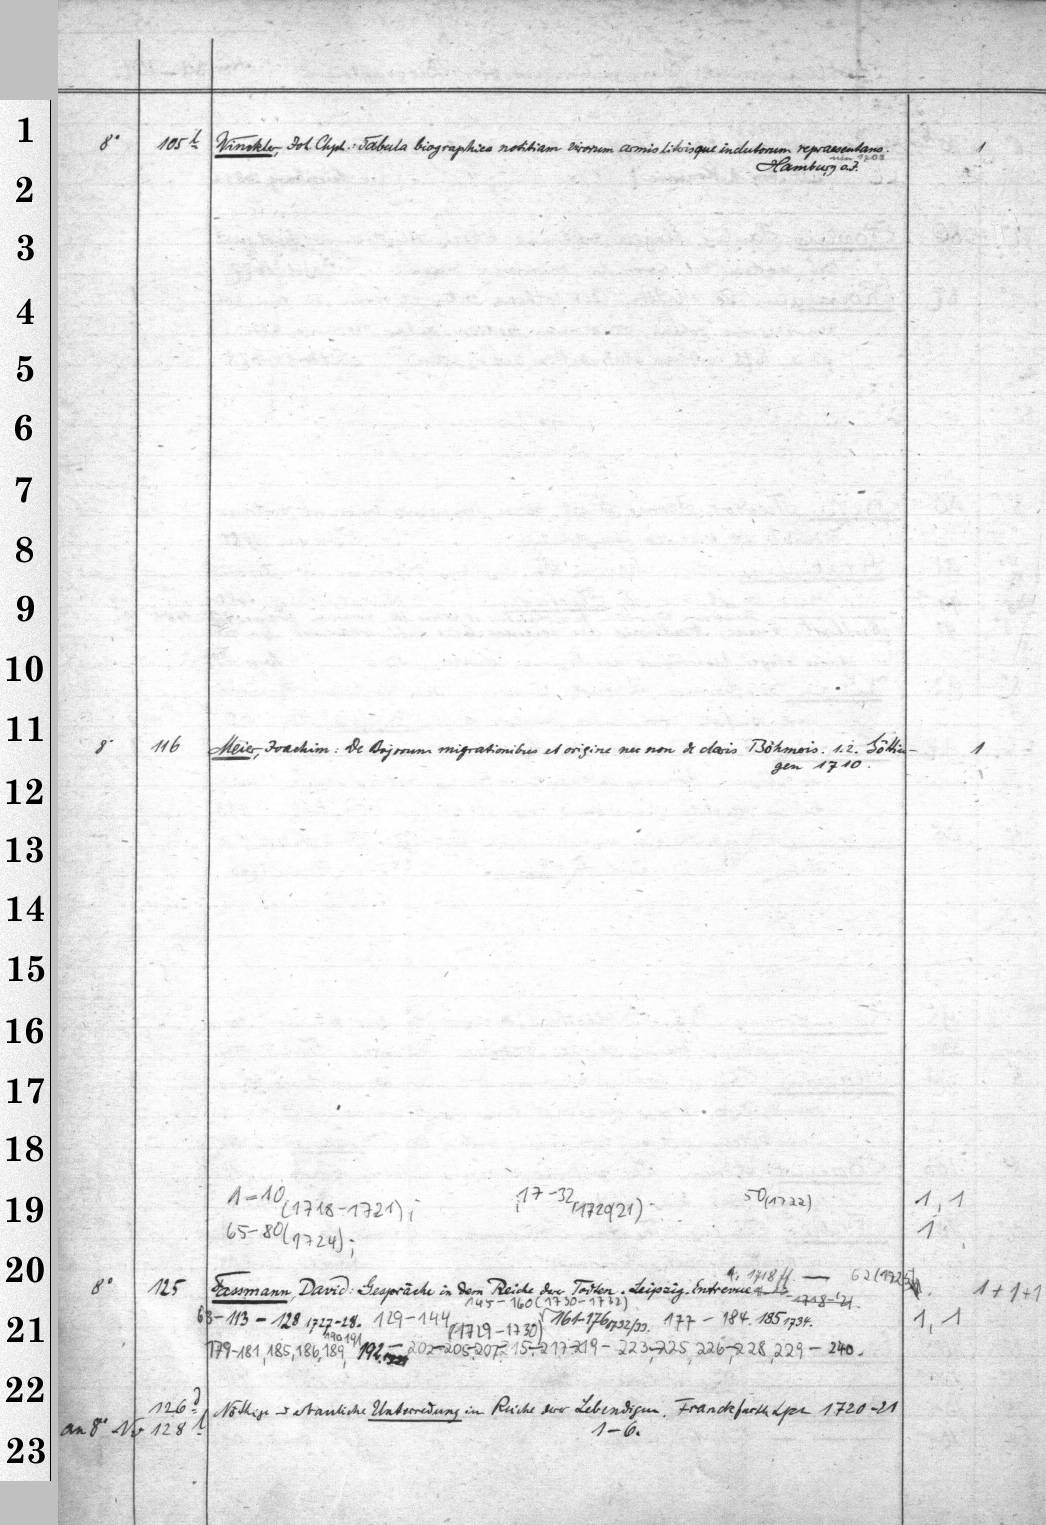 1
8° 105 b Vinckler, Joh. Chph.: Tabula biographica notitiam virorum armis litisque inclutorum repraesentans. 1
Hamburg o.J.
2
3
4
5
6
7
8
9
10
11
8° 116 Meier, Joachim: De Bojorum migrationibus et origine nec non de claris Böhmeris. 1.2. Göttin- 1
gen 1710.
12
13
14
15
16
17
18
19
1-10 (1718-1721); 17-32 (1720/21) 50 (1722) 1, 1
65-80 (1724); 1
20
8° 125 Fassmann, David: Gespräche in dem Reiche der Todten. Leipzig. Entrevue 1718 ff 62 (1725) 1+1+1
1718-21.
145-160 (1730-1732)
21
63-113-128 1727-28. 129-144 (1729-1730) 161-176 1732/33. 177-184. 185 1734. 1, 1
190 191
179-181, 185, 186, 189, 192- 202-205, 207- 215-217-219-223-225, 226-228, 229-240.
22
126 d Nöthige erbauliche Unterredung im Reiche der Lebendigen. Franckfurth Lpz 1720-21
an 8° Nr 128 b 1-6.
23